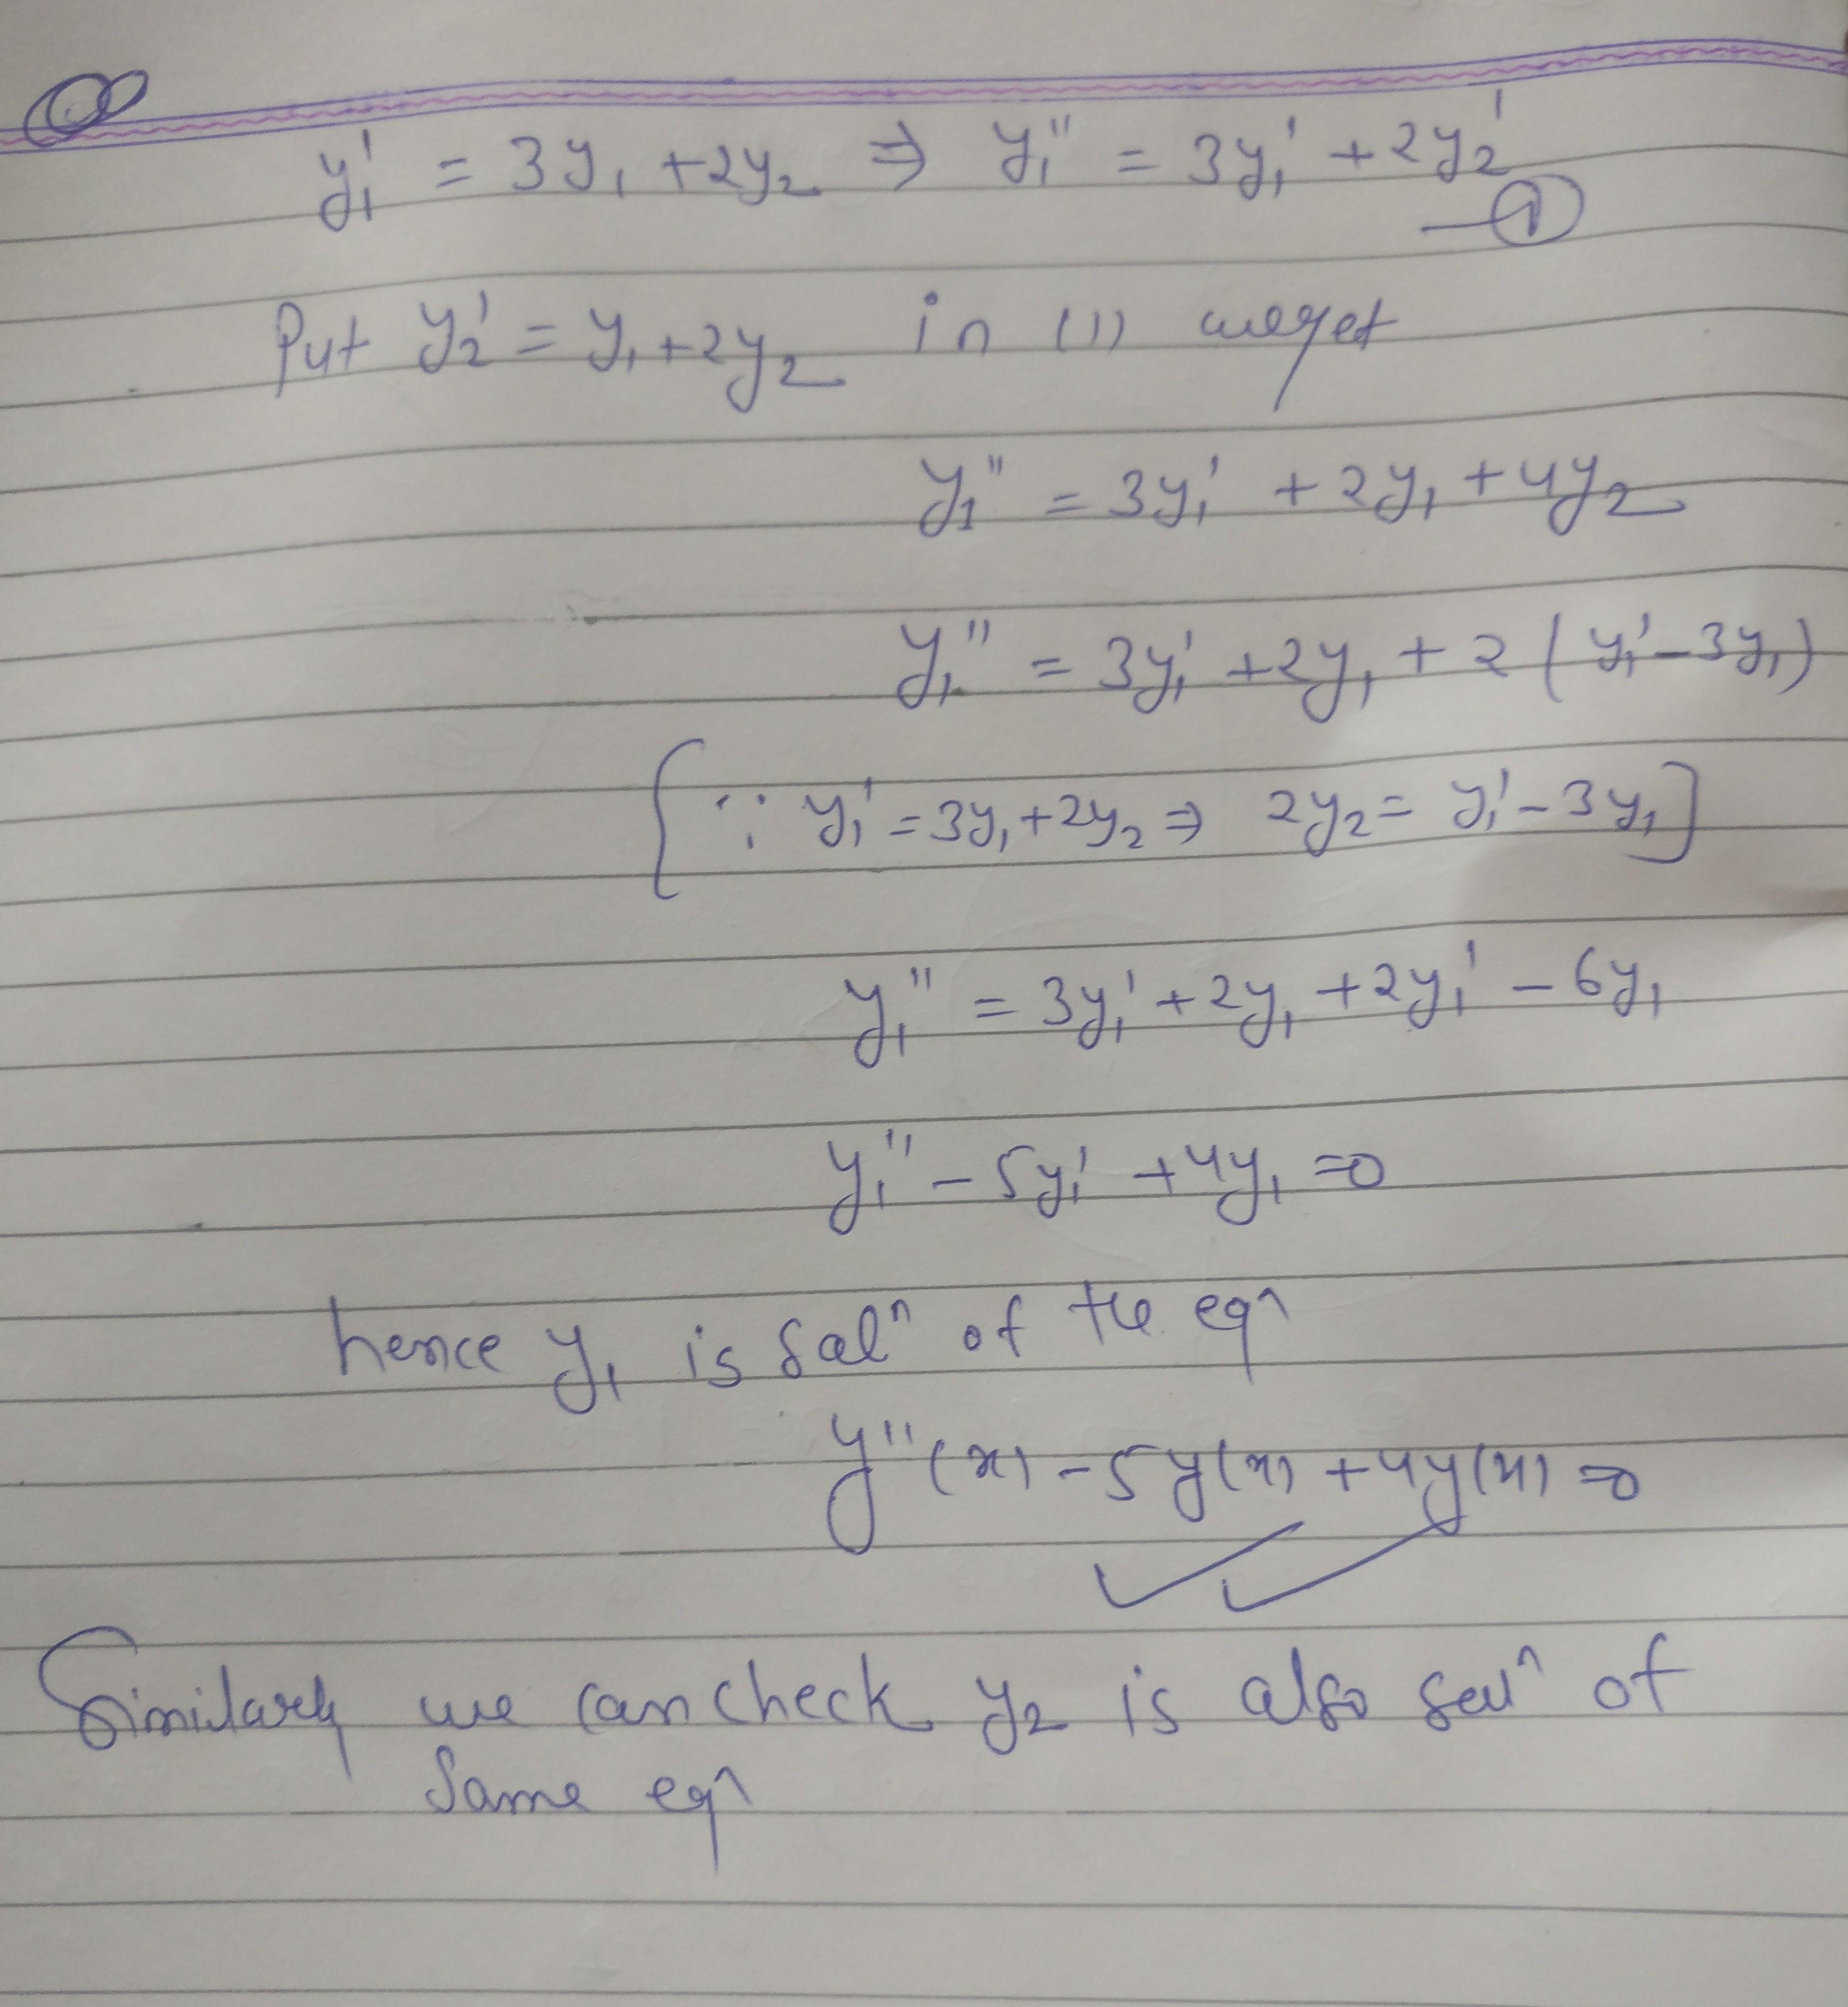 y₁' = 3y₁ + 2y₂ ⇒ y₁'' = 3y₁' + 2y₂'
— ①
Put y₂' = y₁ + 2y₂ in (1) we get
y₁'' = 3y₁' + 2y₁ + 4y₂
y₁'' = 3y₁' + 2y₁ + 2(y₁' - 3y₁)
[∵ y₁' = 3y₁ + 2y₂ ⇒ 2y₂ = y₁' - 3y₁]
y₁'' = 3y₁' + 2y₁ + 2y₁' - 6y₁
y₁'' - 5y₁' + 4y₁ = 0
hence y₁ is solⁿ of the eqⁿ
y''(x) - 5y(x) + 4y(x) = 0
Similarly we can check y₂ is also solⁿ of
Same eqⁿ